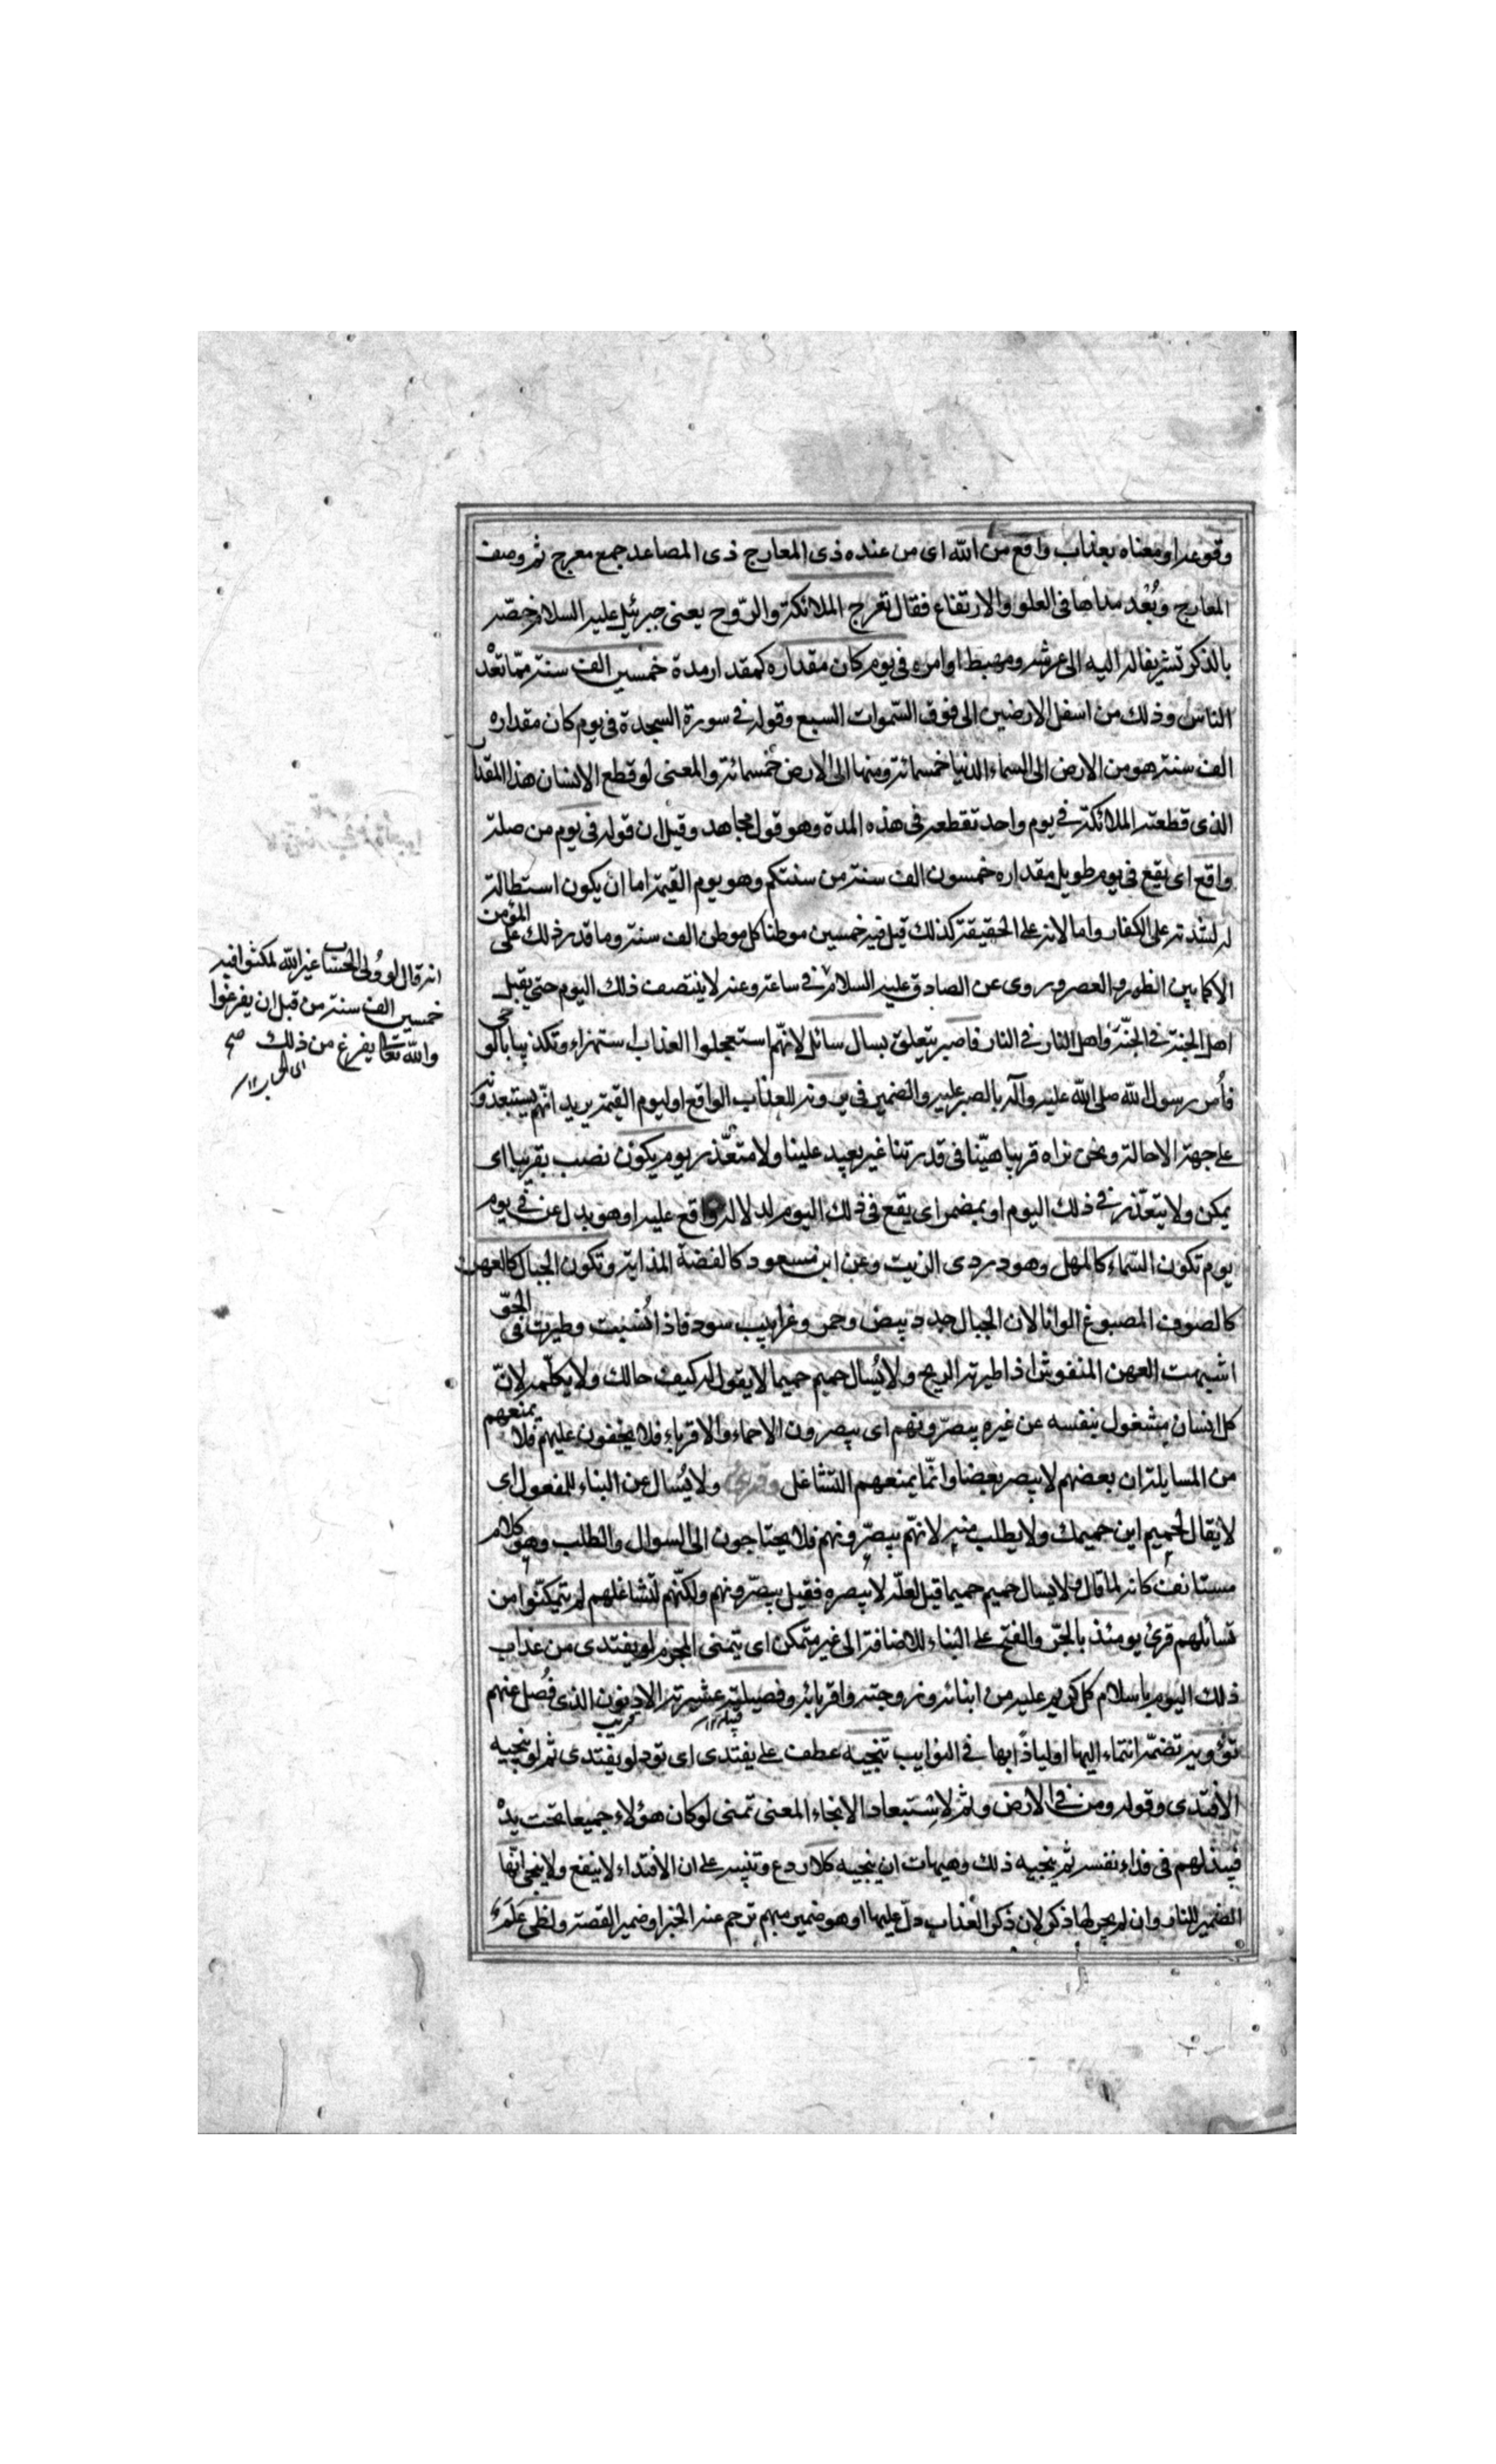 وقوعه او معناه بعذاب واقع من الله اى من عنده ذى المعارج ذى المصاعد جمع معرج ثم وصف
المعارج وبُعْد مداها فى العلو والارتفاع فقال تعرج الملائكة والرّوح يعنى جبرئيل عليه السلام خصّه
بالذكر تشريفا له اليه الى عرشه ومهبط اوامره فى يوم كان مقداره كمقدار مدة خمسين الف سنة ممّا تعدّ
الناس وذلك من اسفل الارضين الى فوق السّموات السبع وقوله فى سورة السجدة فى يوم كان مقداره
الف سنة هو من الارض الى السماء الدنيا خمسمائة ومنها الى الارض خمسمائة والمعنى لو قطع الانسان هذا المقدار
الذى قطعته الملائكة فى يوم واحد تقطعه فى هذه المدة وهو قول مجاهد وقيل ان قوله فى يوم من صلة
واقع اى يقع فى يوم طويل مقداره خمسون الف سنة من سنتكم وهو يوم القيمة اما ان يكون استطالة
له لشدته على الكفار واما لانه على الحقيقة كذلك قيل فيه خمسين موطنا كل موطن الف سنة وما قدر ذلك على المؤمن
الا كما بين الظهر والعصر وروى عن الصادق عليه السلام فى ساعة وعنه لا ينتصف ذلك اليوم حتى يقيل
اهل الجنة فى الجنّة واهل النار فى النار فاصبر يتعلق بسال سائل لانّهم استعجلوا العذاب استهزاء وتكذيبا بالوحى
فأمر رسول الله صلى الله عليه وآله بالصبر عليه والضمير فى يرونه للعذاب الواقع او ليوم القيمة يريد انّهم يستبعدونه
على جهة الاحالة ونحن نراه قريبا هيّنا فى قدرتنا غير بعيد علينا ولا متعّذر يوم يكون نصب بقريبا اى
يمكن ولا يتعّذر فى ذلك اليوم او بمضمر اى يقع فى ذلك اليوم لدلالة واقع عليه او هو بدل عن فى يوم
يوم تكون السّماء كالمهل وهو دردى الزيت وعن ابن مسعود كالفضة المذابة وتكون الجبال كالعهن
كالصوف المصبوغ الوانا لان الجبال جدد بيض وحمر وغرابيب سود فاذا بُسّت وطيّرت فى الجوّ
اشبهت العهن المنفوش اذا طيرته الريح ولا يُسال حميم حميما لا يقول له كيف حالك ولا يكلّمه لانّ
كل انسان مشغول بنفسه عن غيره يبصّرونهم اى يبصرون الاحماء والاقرباء فلا يخفون عليهم فلا يمنعهم
من المسايلة ان بعضهم لا يبصر بعضا وانّما يمنعهم التّشاغل وقرئ ولا يُسال عن البناء للمفعول اى
لا يقال لحميم اين حميمك ولا يطلب منه لانهّم يبصّرونهم فلا يحتاجون الى السوال والطلب وهو كلام
مستانف كانه لما قال ولا يسال حميم حميما قيل لعلّه لا يبصره فقيل يبصّرونهم ولكنّهم لتشاغلهم لم يتمكنّوا من
تسائلهم قرئ يومئذ بالجّر والفتح على البناء للاضافة الى غير متمكن اى يتمنى المجرم لو يفتدى من عذاب
ذلك اليوم باسلام كل كريم عليه من ابنائه وزوجته واقربائه وفصيلته عشيرته الادنون الذى فُصل عنهم
تؤويه تضمّه انتماء اليها او لياذًا بها فى النوايب ينجيه عطف على يفتدى اى تود لو يفتدى ثم لو ينجيه
الافتدى وقوله ومن فى الارض وثم لاستبعاد الانجاء المعنى تمنى لو كان هؤلاء جميعا تحت يدْ
فيبذلهم فى فداء نفسه ثم ينجيه ذلك وهيهات ان ينجيه كلا ردع وتنبيه على ان الافتداء لا ينفع ولا ينجى انّها
الضمير للنار وان لم يجر لها ذكر لان ذكر العذاب دلّ عليها او هو ضمير مبهم ترجم عنه الخبر او ضمير القصة ولظى عَلَم
انه قال لو وُلى الحساب غير الله لمكثوا فيه
خمسين الف سنة من قبل ان يفرغوا
والله تعالى يفرغ من ذلك صح